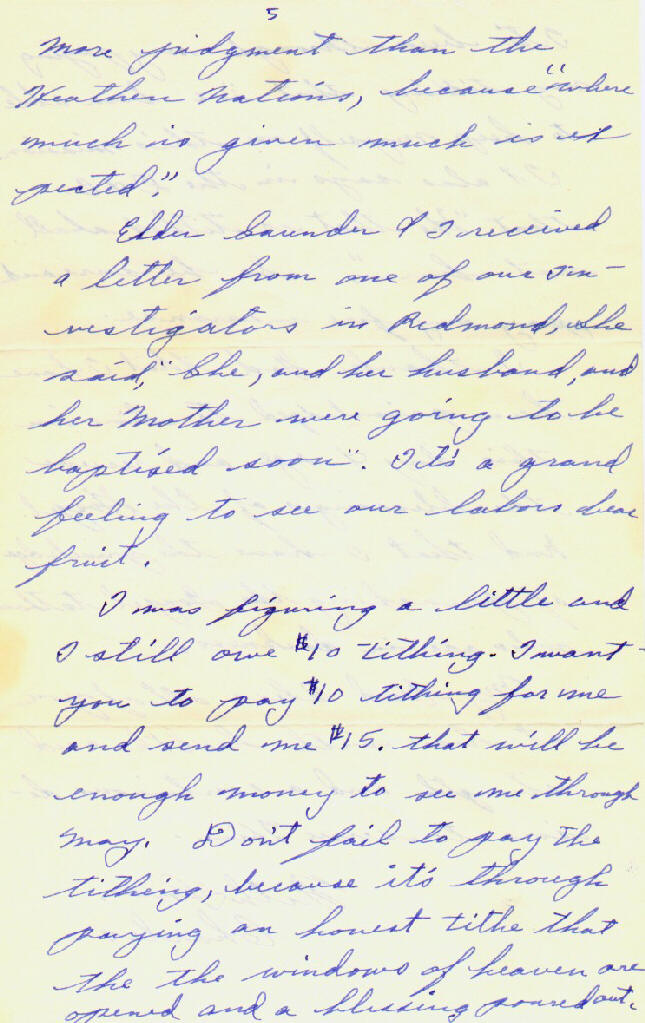 5
more judgment than the
Heathen Nations, because "where
much is given much is ex
pected."
Elder Saunder & I received
a letter from one of our In-
vestigators in Redmond, she
said, "She, and her husband, and
her Mother were going to be
baptised soon". It's a grand
feeling to see our labors bear
fruit.
I was figuring a little and
I still owe $10 tithing. I want
you to pay $10 tithing for me
and send me $15. that will be
enough money to see me through
May. Don't fail to pay the
tithing, because it's through
paying an honest tithe that
the the windows of heaven are
opened and a blessing poured out.